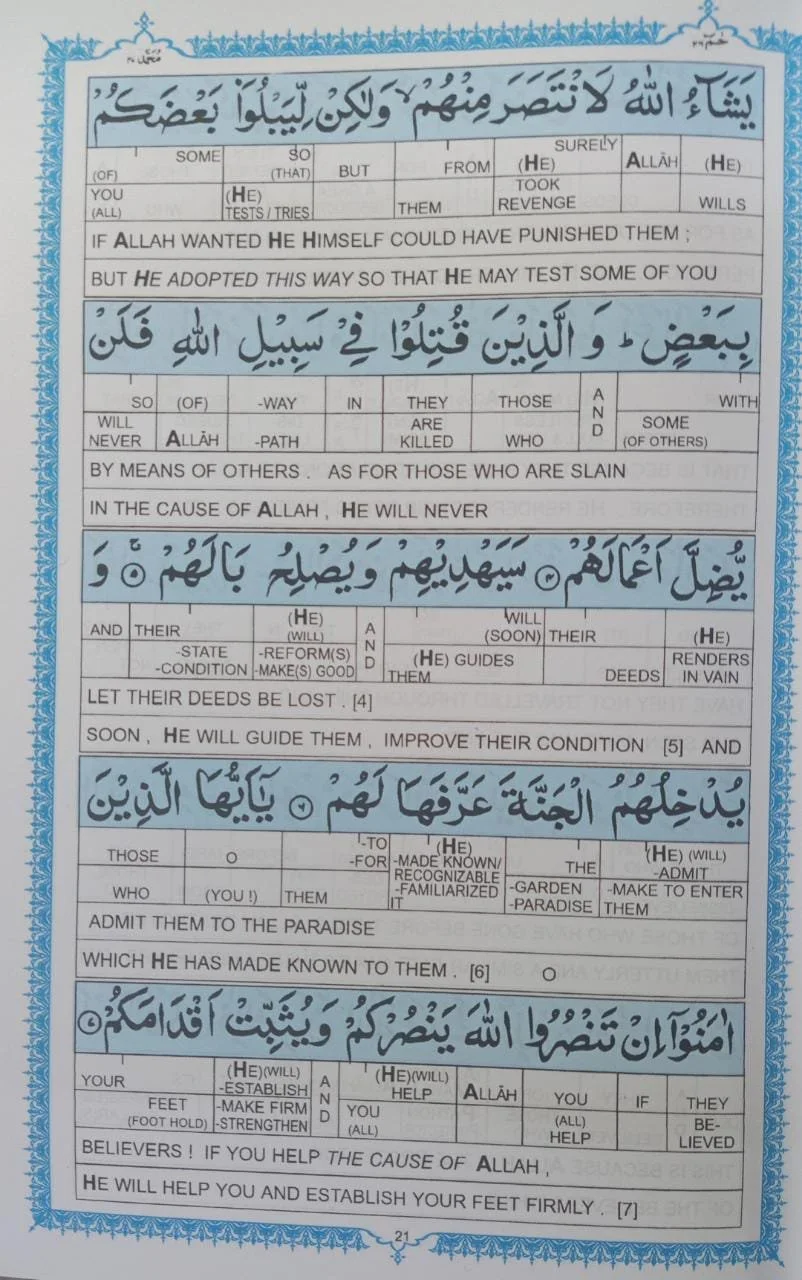 محمد ٤٧
حٰمٓ ٢٦
يَشَآءُ اللّٰهُ لَانْتَصَرَ مِنْهُمْ ۙ وَلٰكِنْ لِّيَبْلُوَا۟ بَعْضَكُمْ
(OF) SOME SO (THAT) BUT FROM SURELY (HE) ALLĀH (HE)
YOU (ALL) (HE) TESTS / TRIES THEM TOOK REVENGE WILLS
IF ALLAH WANTED HE HIMSELF COULD HAVE PUNISHED THEM ;
BUT HE ADOPTED THIS WAY SO THAT HE MAY TEST SOME OF YOU
بِبَعْضٍ ؕ وَ الَّذِيْنَ قُتِلُوْا فِيْ سَبِيْلِ اللّٰهِ فَلَنْ
SO (OF) -WAY IN THEY THOSE AND WITH
WILL NEVER ALLĀH -PATH ARE KILLED WHO SOME (OF OTHERS)
BY MEANS OF OTHERS . AS FOR THOSE WHO ARE SLAIN
IN THE CAUSE OF ALLAH , HE WILL NEVER
يُّضِلَّ اَعْمَالَهُمْ ۝٤ سَيَهْدِيْهِمْ وَيُصْلِحُ بَالَهُمْ ۝٥ۚ وَ
AND THEIR (HE) (WILL) AND WILL (SOON) THEIR (HE)
-STATE -CONDITION -REFORM(S) -MAKE(S) GOOD (HE) GUIDES THEM DEEDS RENDERS IN VAIN
LET THEIR DEEDS BE LOST . [4]
SOON , HE WILL GUIDE THEM , IMPROVE THEIR CONDITION [5] AND
يُدْخِلُهُمُ الْجَنَّةَ عَرَّفَهَا لَهُمْ ۝٦ يٰٓاَيُّهَا الَّذِيْنَ
THOSE O -TO -FOR (HE) -MADE KNOWN/ RECOGNIZABLE THE (HE) (WILL) -ADMIT
WHO (YOU !) THEM -FAMILIARIZED IT -GARDEN -PARADISE -MAKE TO ENTER THEM
ADMIT THEM TO THE PARADISE
WHICH HE HAS MADE KNOWN TO THEM . [6] O
اٰمَنُوْٓا اِنْ تَنْصُرُوا اللّٰهَ يَنْصُرْكُمْ وَيُثَبِّتْ اَقْدَامَكُمْ ۝٧
YOUR (HE)(WILL) -ESTABLISH AND (HE)(WILL) HELP ALLĀH YOU IF THEY
FEET (FOOT HOLD) -MAKE FIRM -STRENGTHEN YOU (ALL) (ALL) HELP BE- LIEVED
BELIEVERS ! IF YOU HELP THE CAUSE OF ALLAH ,
HE WILL HELP YOU AND ESTABLISH YOUR FEET FIRMLY . [7]
21